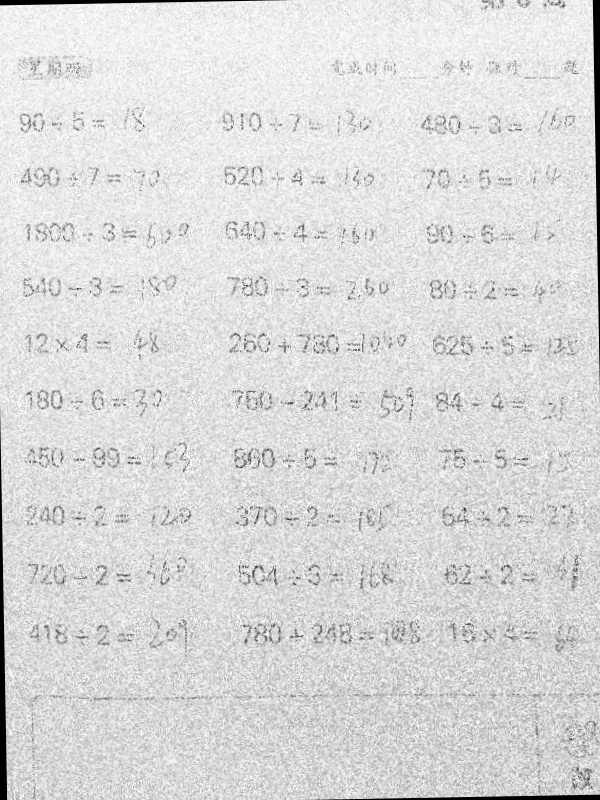 完成时间___分钟 做对___题
90÷5=18 910÷7=130 480÷3=160
490÷7=70 520÷4=130 70÷5=14
1800÷3=600 640÷4=160 90÷6=15
540÷3=180 780÷3=260 80÷2=40
12×4=48 260+780=1040 625÷5=125
180÷6=30 750-241=509 84÷4=21
860÷5=172 75÷5=15
240÷2=120 370÷2=185 64÷2=32
720÷2=360 504÷3=168 62÷2=
418÷2=209 780+248= 16×4=